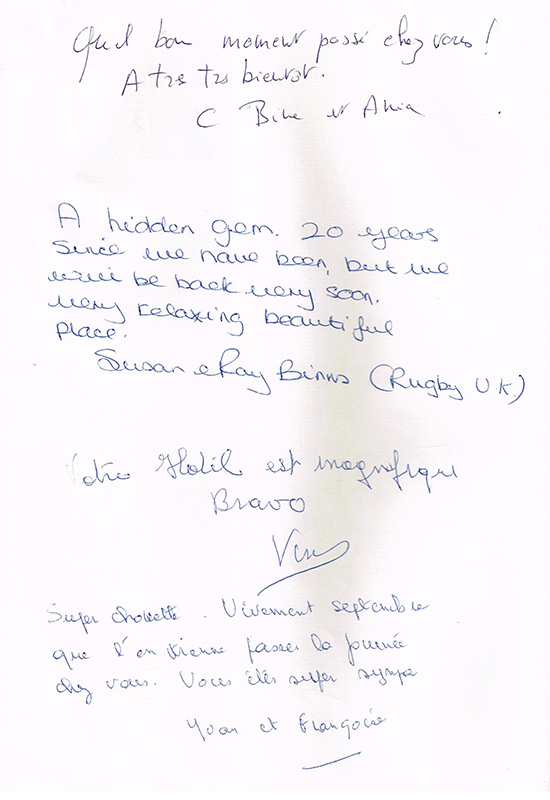 Quel bon moment passé chez vous !
A trs trs bientot.
C et
A hidden gem. 20 years
Since we have been, but we
will be back very soon.
very relaxing beautiful
place.
Susan & Ray Binns (Rugby U.K.)
Votre Hotel est magnifique
Bravo
Super chouette. Vivement septembre
que l'on vienne passer la journée
chez vous. Vous êtes super sympa
Yvan et Françoise